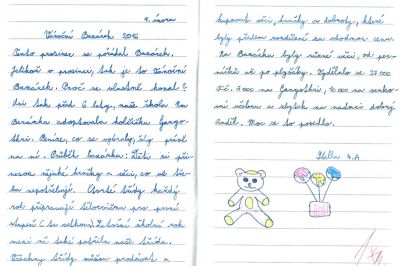 9. února
Vánoční Bazárek 2016
Tento prosinec se pořádal Bazárek.
Jelikož v prosinci, tak je to Vánoční
Bazárek. Proč se vlastně konal?
Asi tak před 6 lety, naše škola Na
Beránku adoptovala holčičku Gango-
shri. Peníze, co se vybraly, šly právě
na ní. Průběh bazárku: Děti si při-
nesou nějaké hračky a věci, co už tře-
ba nepotřebují. Čtvrté třídy každý
rok připravují tělocvičnu pro první
stupeň (tu velkou). Letošní školní rok
mezi ně také patřila naše třída.
Všechny třídy můžou prodávat a
kupovat věci, hračky a dobroty, které
byly předem rozděleny za vhodnou cenu.
Na Bazárku byly různé věci, od per-
níčků až po plyšáky. Vydělalo se 27 000
Kč. 7 000 na Gangoshri, 10 000 na venkov-
ní učebnu a zbytek na nadaci dobrý
anděl. Moc se to povedlo.
Stella 4.A